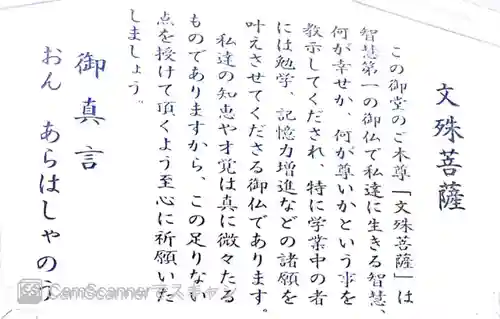 文殊菩薩
この御堂のご本尊「文殊菩薩」は
智慧第一の御仏で私達に生きる智慧、
何が幸せか、何が尊いかという事を
教示してくだされ、特に学業中の者
には勉学、記憶力増進などの諸願を
叶えさせてくださる御仏であります。
私達の知恵や才覚は真に微々たる
ものでありますから、この足りない
点を授けて頂くよう至心に祈願いた
しましょう。
御真言
おん あらはしゃのう
CamScannerでスキャン